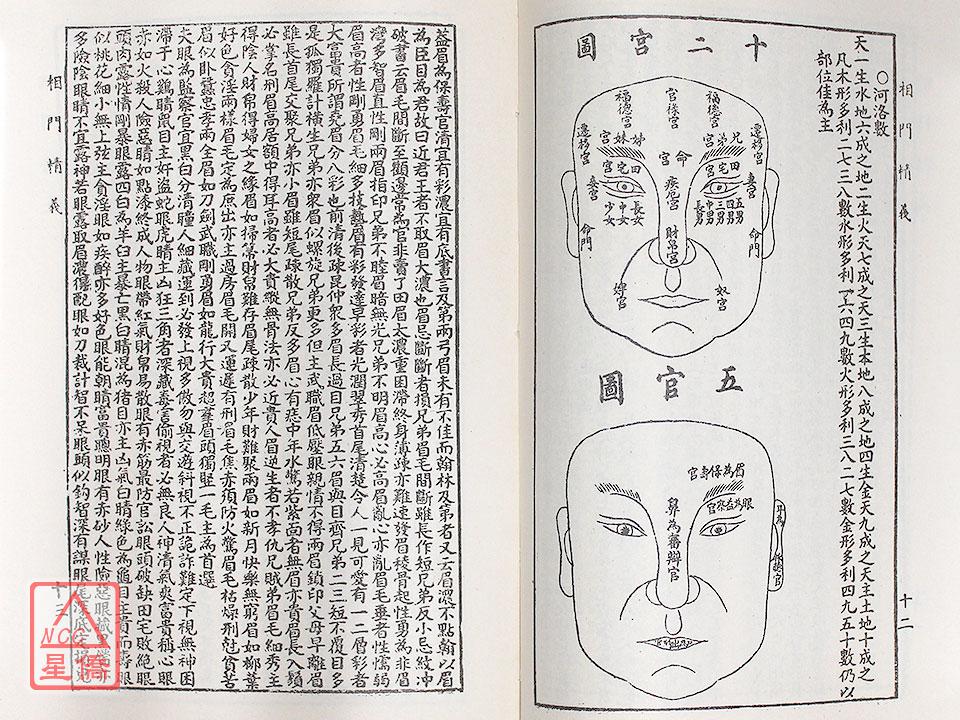 相門精義
○河洛數
天一生水地六成之地二生火天七成之天三生本地八成之地四生金天九成之天主土地十成之
凡木形多利二七三八數水形多利一六四九數火形多利三八二七數金形多利四九五十數仍以
部位佳為主
十二宮圖
官祿宮
福德宮
福德宮
遷移宮
遷移宮
兄弟宮
姊妹宮
命宮
田宅宮
田宅宮
妻宮
妻宮
疾厄宮
長男
中男
三男
四男
五男
長女
中女
少女
命門
命門
財帛宮
奴宮
婢宮
五官圖
眉為保壽官
眼為監察官
鼻為審辯官
耳為
十二
相門精義
蓋眉為保壽官清宜有彩濃宜有底書言及第兩弓眉未有不佳而翰林及第者又云眉濃不點翰以眉
為臣目為君故曰近君王者不取眉大濃也眉忌斷斷者損兄弟眉毛間斷雖長作短兄弟反小忌紋沖
破書云眉毛間斷至顴邊常為官非賣了田眉太濃重困滯終身薄疎亦難速發眉稜骨起性勇為非眉
灣多智眉直性剛兩眉指印兄弟不睦眉暗無光兄弟不明眉高心必高眉亂心亦亂眉毛垂者性懦弱
眉高者性剛勇眉毛細多技藝眉有彩發達早彩者光潤翌秀首尾清楚令人一見可愛有一二眉彩者
大富貴所謂堯眉分八彩也前清後疎昆仲衆多眉長過目兄弟五六眉與目齊兄弟二三短不覆目多
是孤獨羅計橫生兄弟亦衆眉似螺旋兄弟更多但主武職眉低壓眼親情不得兩眉鎖印父母早離眉
雖長首尾交聚兄弟亦小眉雖短尾疎散兄弟反多眉心有痣中年水驚若紫面者無眉亦貴眉長入顙
必掌名刑眉高居額中得耳高者必大貴縱無骨法亦必近貴人眉逆生者不孝仇兄賊弟眉毛細秀主
得陰人財帛得婦女之緣眉如掃箒財帛雖存眉尾疎散少年財難聚兩眉如新月快樂無窮眉如柳葉
好色貪淫兩樣眉毛定為庶出亦主過房眉毛開又運遲有刑眉毛焦赤須防火驚眉毛枯燥刑尅貧苦
眉似卧蠶忠孝兩全眉如刀劍武職剛勇眉如龍行大貴超羣眉頭獨豎一毛主為首選
夫眼為監察官宜黑白分清瞳人細藏運到必發上視多傲勿與交遊斜視不正詭詐難定下視無神困
滯于心鷄睛鼠目主奸盜蛇眼虎睛主凶狂三角者深藏毒害偷視者必無良人神清氣爽富貴稱心眼
亦如火殺人險惡睛如點漆終成人物眼帶紅氣財帛易散眼有赤筋最防官訟眼頭破缺田宅敗絕眼
頭肉露性情剛暴眼露四白為羊白主暴亡黑白睛混為猪目亦主凶氣白睛綠色為龜目主貴而壽眼
似桃花細小無上弦主貪淫眼如疾醉亦多好色眼能朝睛富貴聰明眼有赤砂人性險惡眼
多險陰眼睛不宜露神若眼露取眉濃僞配眼如刀裁計智不呆眼頭似鈎智深有謀眼尾
十三
NCC
星僑